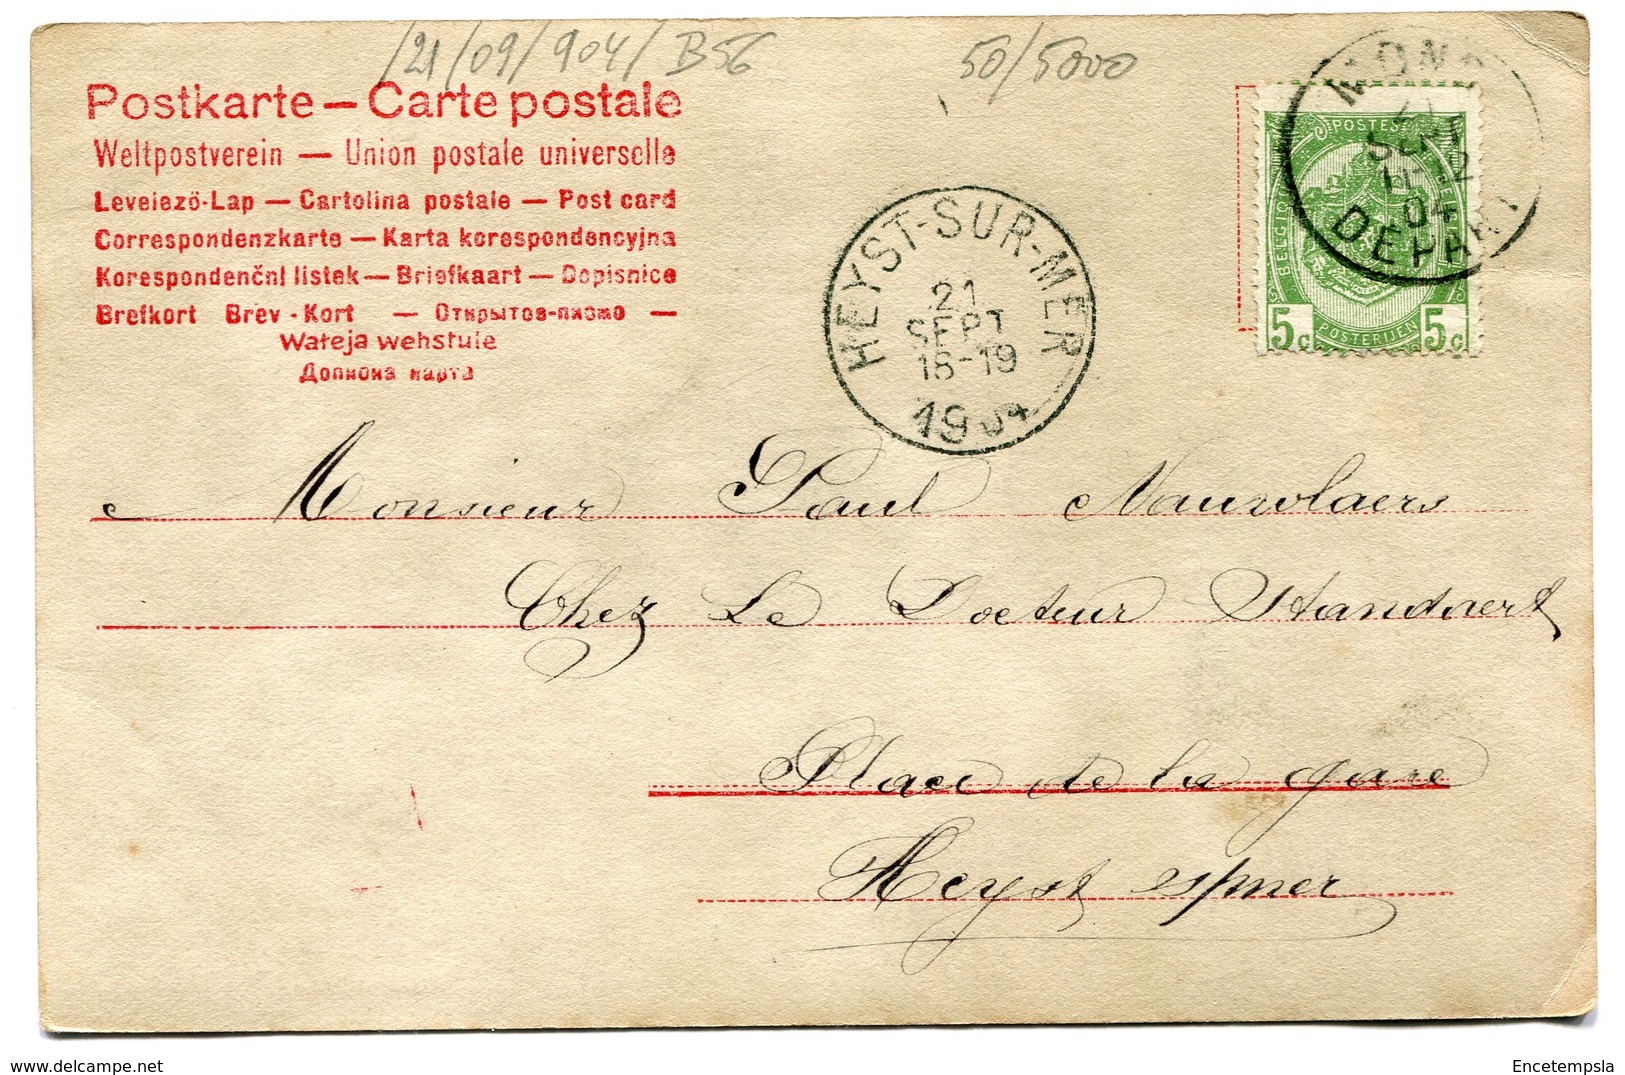 /21/09/904/B56
50/5000
Postkarte — Carte postale
Weltpostverein — Union postale universelle
Levelező-Lap — Cartolina postale — Post card
Correspondenzkarte — Karta korespondencyjna
Korespondenční listek — Briefkaart — Dopisnice
Brefkort Brev-Kort — Открытое-письмо —
Wateja wehstule
Дописна карта
HEYST-SUR-MER
21
SEPT
18-19
1904
SEPT
11-12
04
DEPART
POSTES
BELGIQUE
5c POSTERIJEN 5c
Monsieur Paul
Chez Le Docteur Standaert
Place de la gare
Heyst
Encetempsla